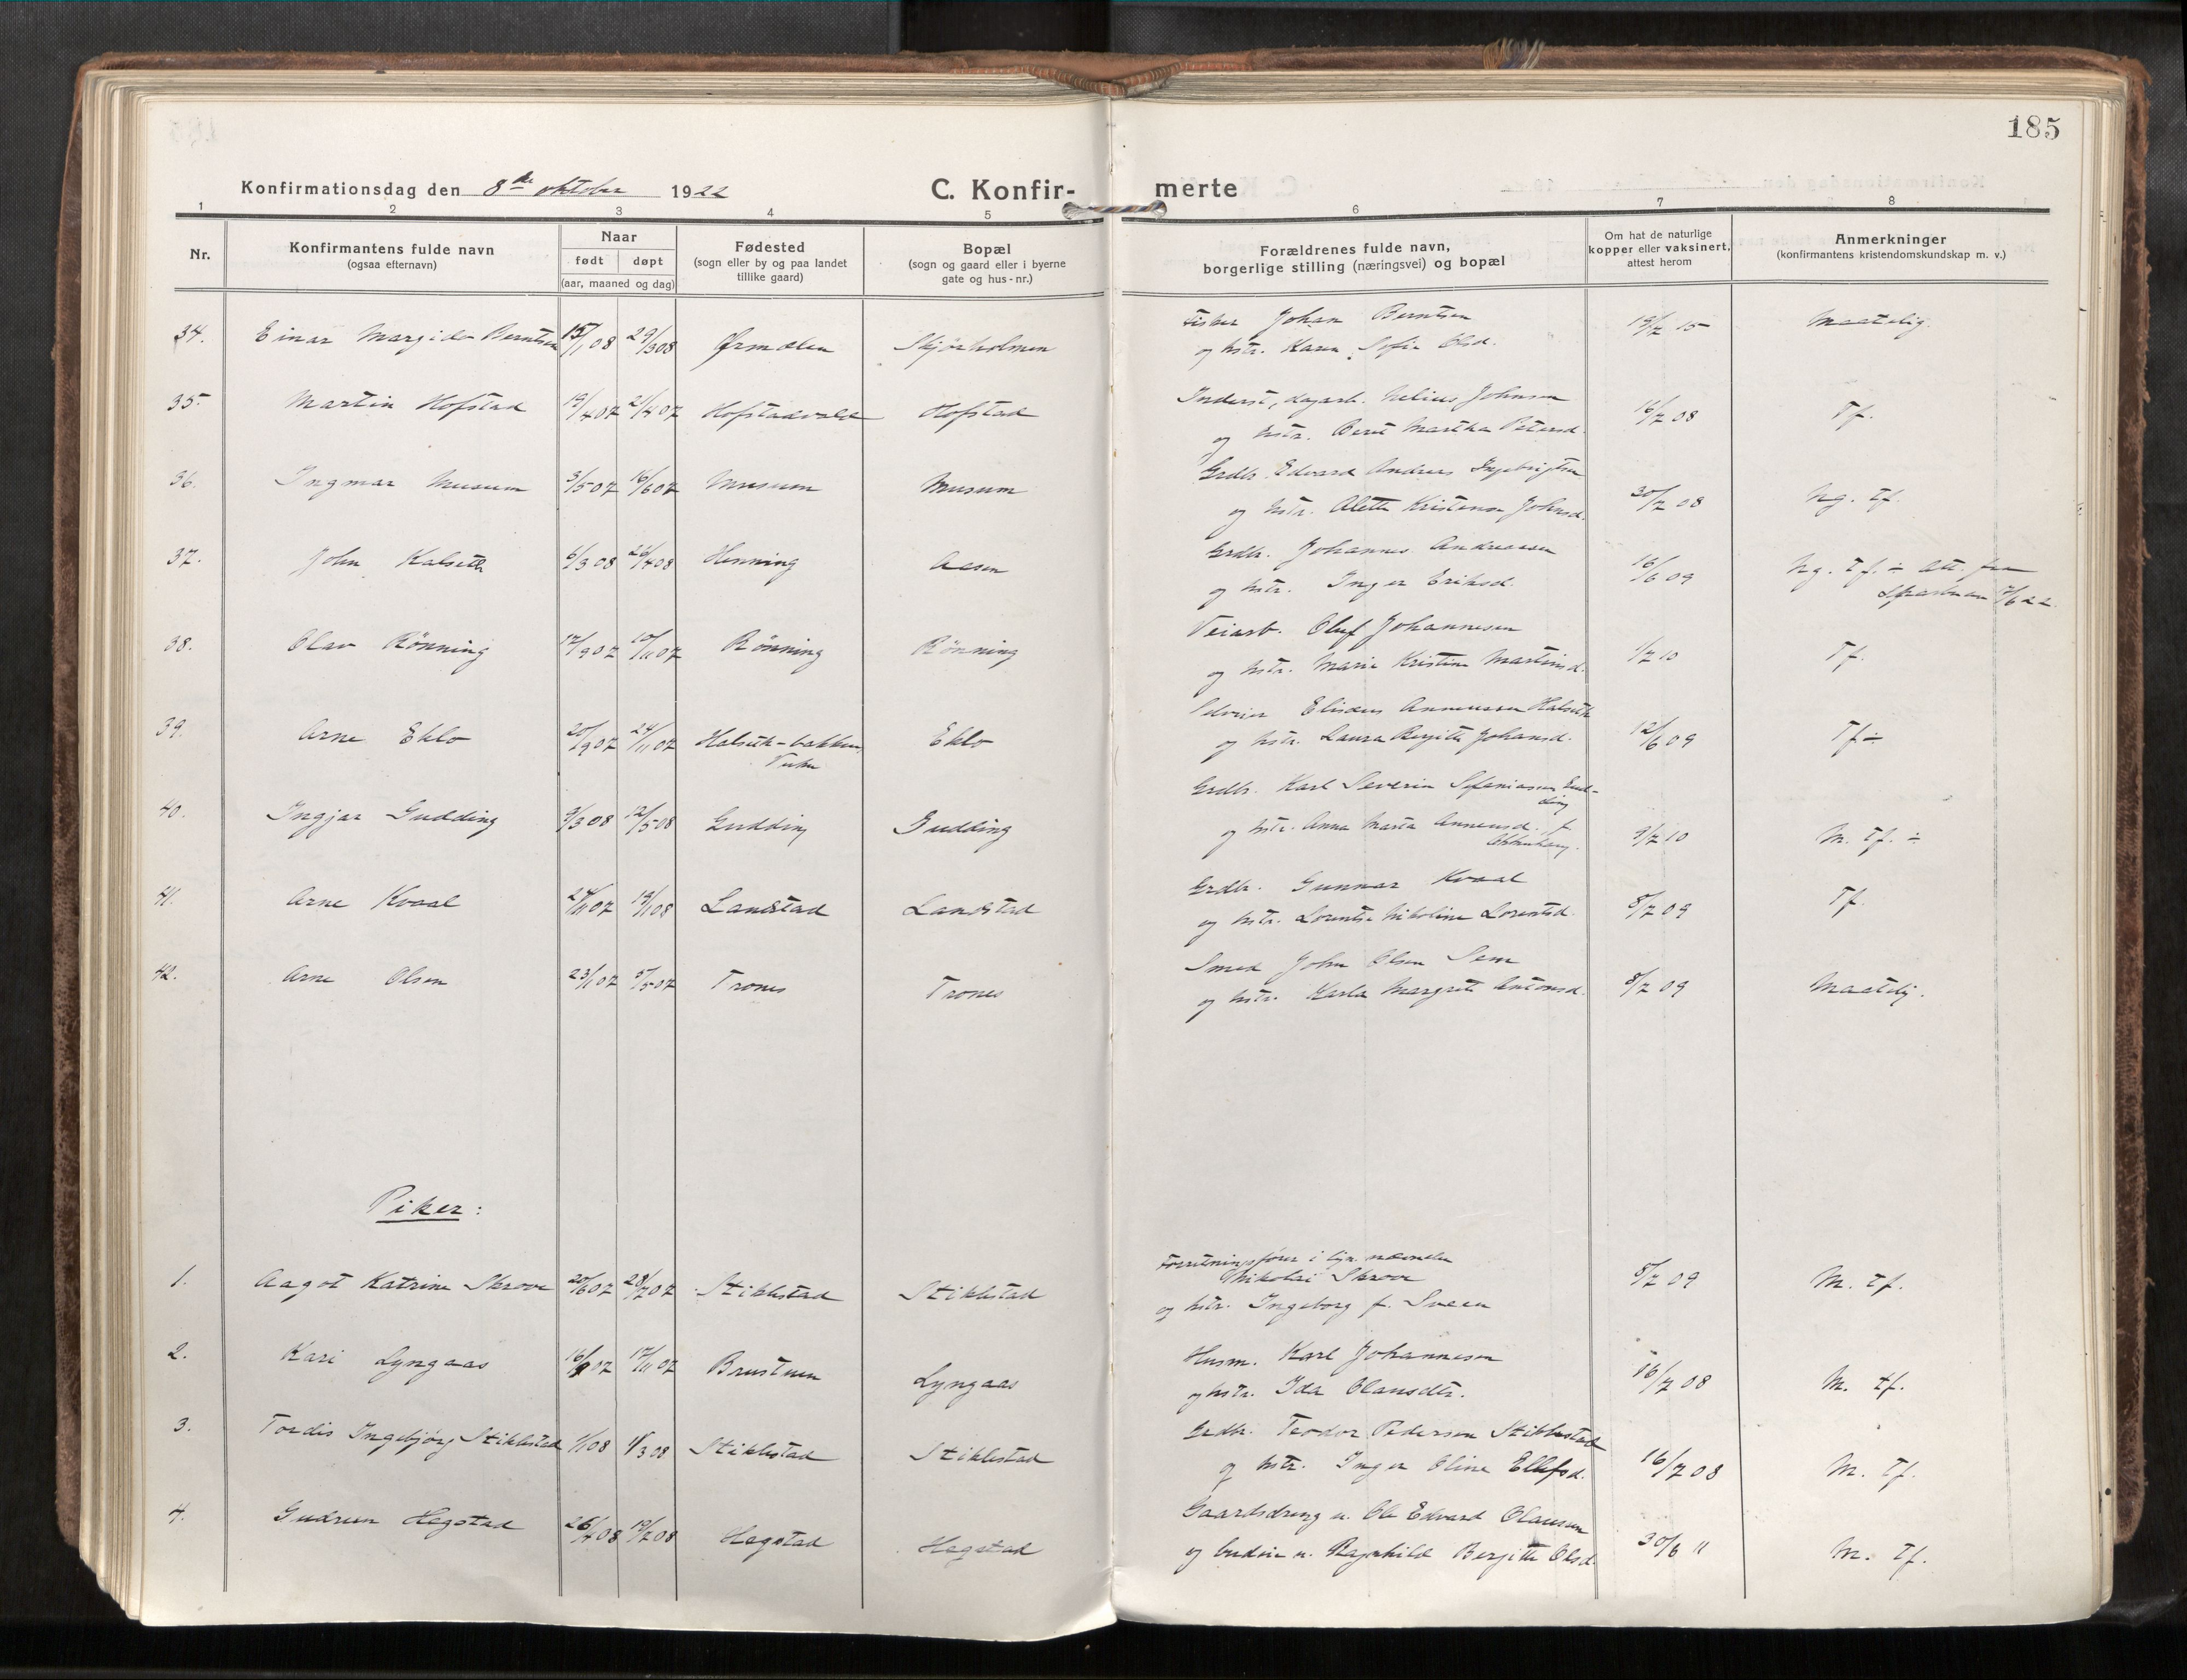 185
Konfirmationsdag den 8de oktober 1922
C. Konfir- merte
1 2 3 4 5 6 7 8
Nr.
Konfirmantens fulde navn
(ogsaa efternavn)
Naar
født døpt
(aar, maaned og dag)
Fødested
(sogn eller by og paa landet
tillike gaard)
Bopæl
(sogn og gaard eller i byerne
gate og hus-nr.)
Forældrenes fulde navn,
borgerlige stilling (næringsvei) og bopæl
Om hat de naturlige
kopper eller vaksinert,
attest herom
Anmerkninger
(konfirmantens kristendomskundskap m. v.)
34. Einar Margido Berntsen 15/1 08 29/3 08 Ørmelen Skjørholmen
Fisker Johan Berntsen
og hstr. Karen Sofie Olsd. 19/7 15 Maatelig.
35. Martin Hofstad 19/4 07 21/4 07 Hofstadvald Hofstad
Inderst, dagarb. Nelius Johnsen
og hstr. Beret Martha Petersd. 16/7 08 Tf.
36. Ingmar Musum 3/5 07 16/6 07 Musum Musum
Grdbr. Edvard Andreas Ingebrigtsen
og hstr. Alette Kristense Johnsd. 30/7 08 Ng. tf.
37. John Kalseth 6/3 08 26/4 08 Henning Aasen
Grdbr. Johannes Andreassen
og hstr. Inger Eriksd. 16/6 09 Ng. tf. ÷ att. fra
Sparbuen 7/6 22.
38. Olav Rönning 17/9 07 10/11 07 Rönning Rönning
Veiarb. Oluf Johannesen
og hstr. Marie Kristine Martinsd. 1/7 10 Tf.
39. Arne Eklo 20/9 07 24/11 07 Halseth-bakken, Eklo
Elisæus Anneussen Halseth
og hstr. Laura Bergitte Johansd. 12/6 09 Tf ÷
40. Ingjar Gudding 9/3 08 12/5 08 Gudding Gudding
Grdbr. Karl Severin Sefaniassen Gud-
ding
og hstr. Anna Marta Anneusd. f. 9/7 10 M. tf. ÷
41. Arne Kvaal 24/11 07 19/1 08 Landstad Landstad
Grdbr. Gunnar Kvaal
og hstr. Lorentse Nikoline Lorentsd. 8/7 09 Tf.
42. Arne Olsen 23/1 07 5/5 07 Trones Trones
Smed John Olsen Sem
og hstr. Karla Margrete Antonsd. 8/7 09 Maatelig.
Piker:
1. Aagot Katrine Skrove 20/6 07 28/7 07 Stiklestad Stiklestad
Forretningsfører i nævnden
Nikolai Skrove
og hstr. Ingeborg f. Sveen 8/7 09 M. tf.
2. Kari Lyngaas 16/9 07 17/11 07 Brustuen Lyngaas
Husm. Karl Johannesen
og hstr. Ida Olausdtr. 16/7 08 M. tf.
3. Tordis Ingebjørg Stiklestad 1/1 08 1/3 08 Stiklestad Stiklestad
Grdbr. Teodor Pedersen Stiklestad
og hstr. Inger Oline Ellefsd. 16/7 08 M. tf.
4. Gudrun Hegstad 26/4 08 19/7 08 Hegstad Hegstad
Gaardsdreng u. Ole Edvard Olausen
og budeie u. Ragnhild Bergitte Olsd. 30/6 11 M. tf.